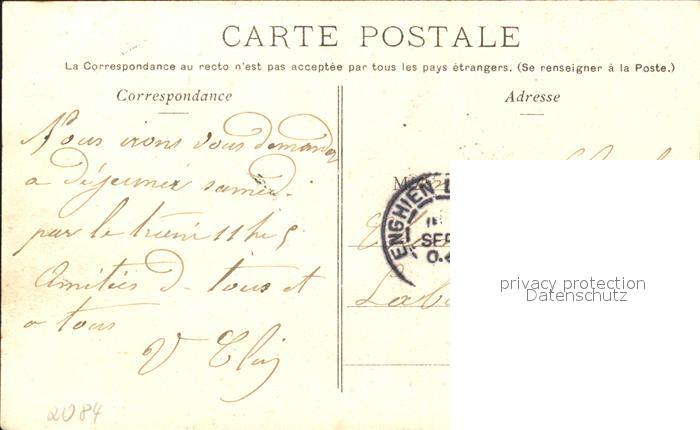 CARTE POSTALE
La Correspondance au recto n'est pas acceptée par tous les pays étrangers. (Se renseigner à la Poste.)
Correspondance
Adresse
Nous irons vous demander
a déjeuner samedi
par le train 11 h 5
Amitiés d. tous et
a tous
V
M
ENGHIEN
SEP
privacy protection
Datenschutz
2084